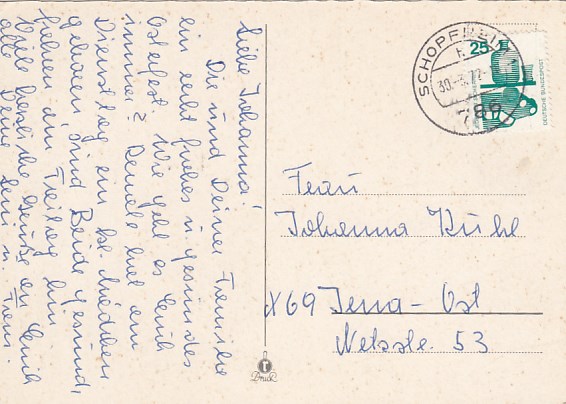 Liebe Johanna!
Dir und Deiner Familie
ein recht frohes u. gesundes
Osterfest. Wie geht es Euch
immer? Renate hat am
Dienstag ein kl. Mädchen
geboren, sind Beide gesund,
fahren am Freitag hin
Viele herzliche Grüße an Euch
alle Deine Leni u. Fam.
SCHOPFHEIM
30.-3.72
786
25
DEUTSCHE BUNDESPOST
Frau
Johanna Kühl
X69 Jena-Ost
Netzstr. 53
Druck